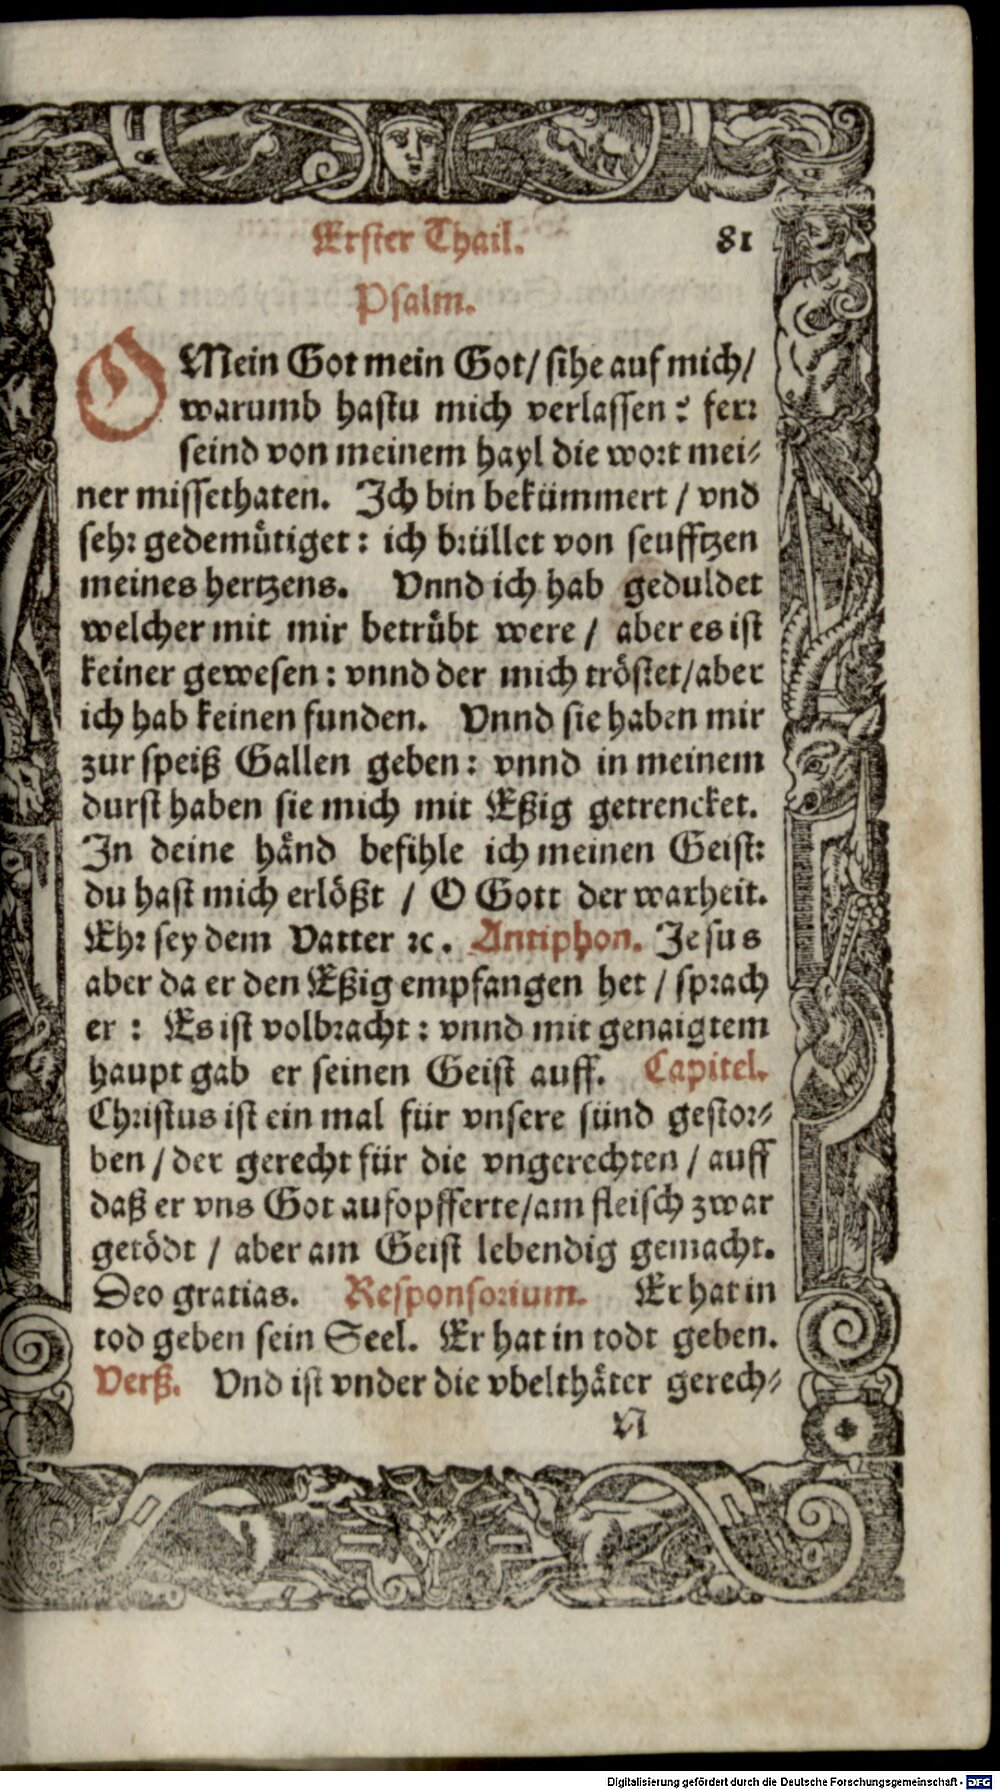 Erster Thail. 81
Psalm.
O Mein Got mein Got/ sihe auf mich/
warumb hastu mich verlassen? ferr
seind von meinem hayl die wort mei-
ner missethaten. Ich bin bekümmert / vnd
sehr gedemuͤtiget: ich brüllet von seufftzen
meines hertzens. Vnnd ich hab geduldet
welcher mit mir betruͤbt were / aber es ist
keiner gewesen: vnnd der mich tröstet/aber
ich hab keinen funden. Vnnd sie haben mir
zur speiß Gallen geben: vnnd in meinem
durst haben sie mich mit Eßig getrencket.
In deine haͤnd befihle ich meinen Geist:
du hast mich erlößt / O Gott der warheit.
Ehr sey dem Vatter ꝛc. Antiphon. Jesus
aber da er den Eßig empfangen het / sprach
er : Es ist volbracht : vnnd mit genaigtem
haupt gab er seinen Geist auff. Capitel.
Christus ist ein mal für vnsere sünd gestor-
ben / der gerecht für die vngerechten / auff
daß er vns Got aufopfferte/am fleisch zwar
getödt / aber am Geist lebendig gemacht.
Deo gratias. Responsorium. Er hat in
tod geben sein Seel. Er hat in todt geben.
Verß. Vnd ist vnder die vbelthaͤter gerech-
N
Digitalisierung gefördert durch die Deutsche Forschungsgemeinschaft - DFG